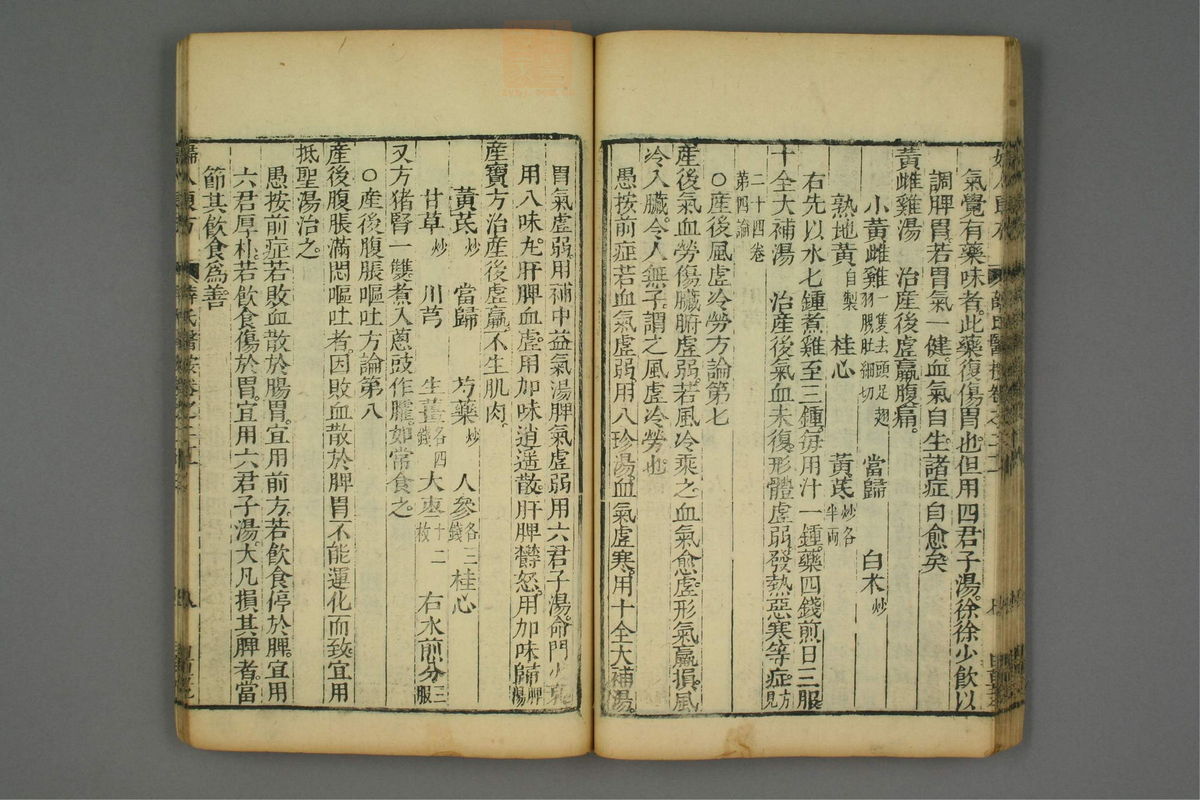 氣覺有藥味者。此藥復傷胃也。但用四君子湯。徐徐少飲以
調脾胃。若胃氣一健。血氣自生。諸症自愈矣
黃雌雞湯　治產後虛羸腹痛。
小黃雌雞一隻去頭足翅羽腸肚細切　當歸　白术炒
熟地黃自製　桂心　黃芪炒各半兩
右先以水七鍾煮雞至三鍾。每用汁一鍾。藥四錢煎日三服。
十全大補湯　治產後氣血未復。形體虛弱。發熱惡寒等症。方見
二十四卷第四論
○產後風虛冷勞方論第七
產後氣血勞傷。臟腑虛弱。若風冷乘之。血氣愈虛。形氣羸損。風
冷入臟。令人無子。謂之風虛冷勞也。
愚按前症若血氣虛弱。用八珍湯。血氣虛寒。用十全大補湯。
胃氣虛弱。用補中益氣湯。脾氣虛弱。用六君子湯。命門火衰。
用八味丸。肝脾血虛。用加味逍遥散。肝脾鬱怒。用加味歸脾湯
產寶方治產後虛羸。不生肌肉。
黃芪炒　當歸　芍藥炒　人參各三錢　桂心
甘草炒　川芎　生薑各四錢　大棗十二枚　右水煎分三服
又方猪腎一雙煮。入蔥豉作臛。如常食之。
○產後腹脹嘔吐方論第八
產後腹脹滿悶嘔吐者。因敗血散於脾胃。不能運化而致。宜用
抵聖湯治之。
愚按前症若敗血散於腸胃。宜用前方。若飲食停於脾。宜用
六君厚朴。若飲食傷於胃。宜用六君子湯。大凡損其脾者。當
節其飲食爲善